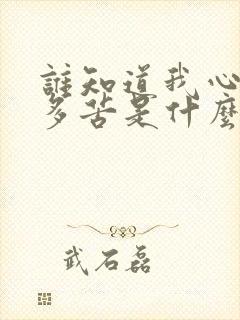 誰知道我心
多苦是什麼
武石磊